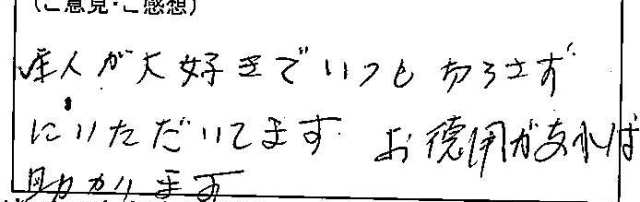 (ご意見・ご感想)
主人が大好きでいつも切らさず
にいただいてます。お徳用があれば
助かります